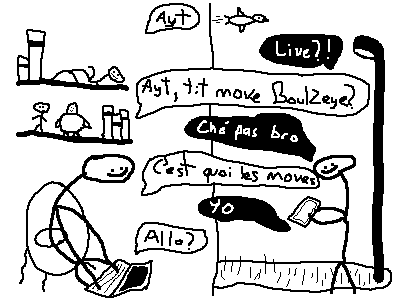 Ayt
Live?!
Ayt, tit move Boulzeye?
Ché pas bro
C'est quoi les moves
YO
Allo?